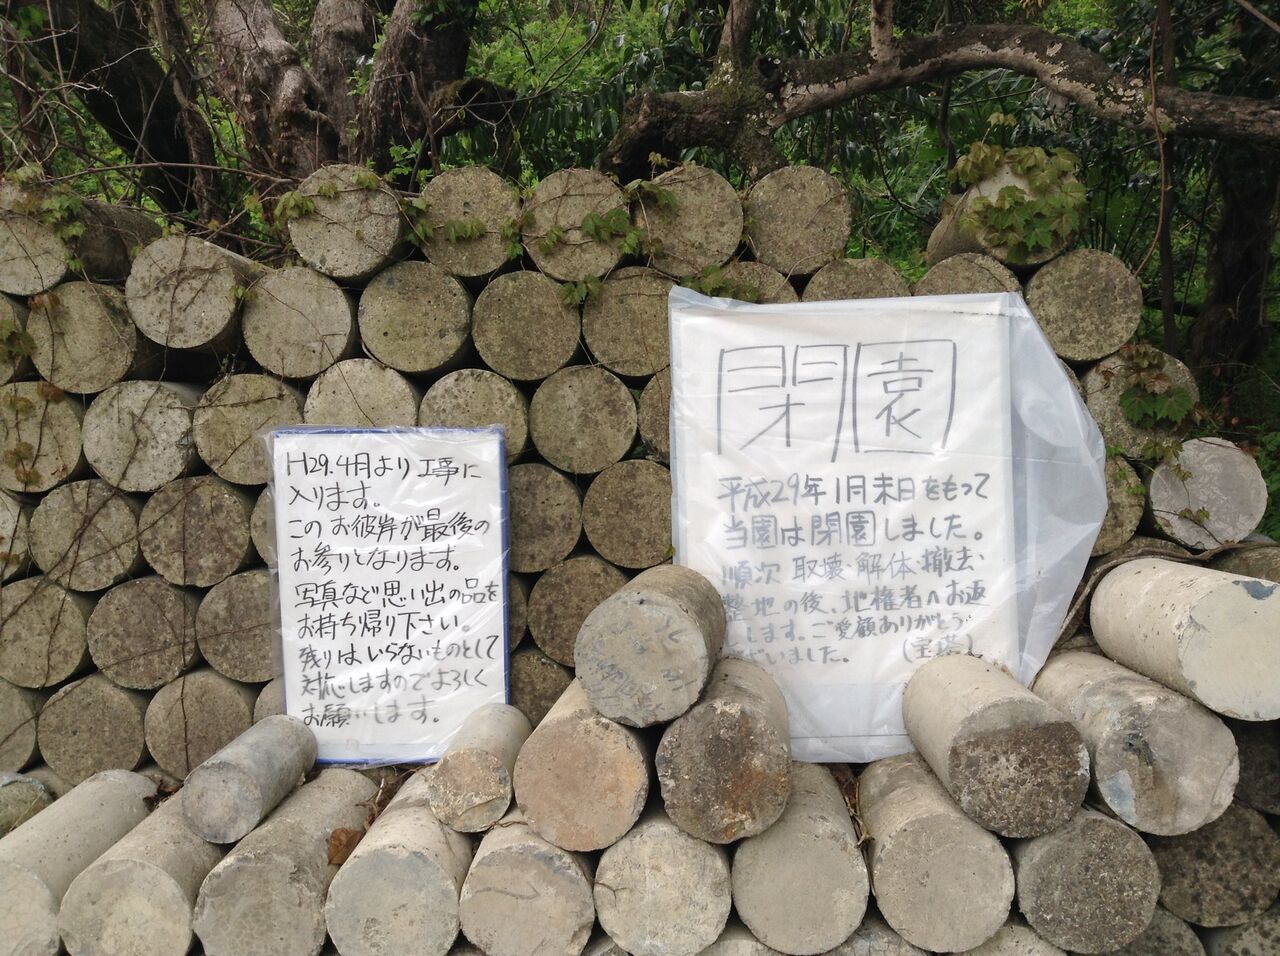 H29.4月より工事に
入ります。
このお彼岸が最後の
お参りとなります。
写真など思い出の品を
お持ち帰り下さい。
残りはいらないものとして
対応しますのでよろしく
お願いします。
閉園
平成29年1月末日をもって
当園は閉園しました。
順次取壊・解体・撤去、
整地の後、地権者へお返
しします。ご愛顧ありがとうご
ざいました。 (宝塔)